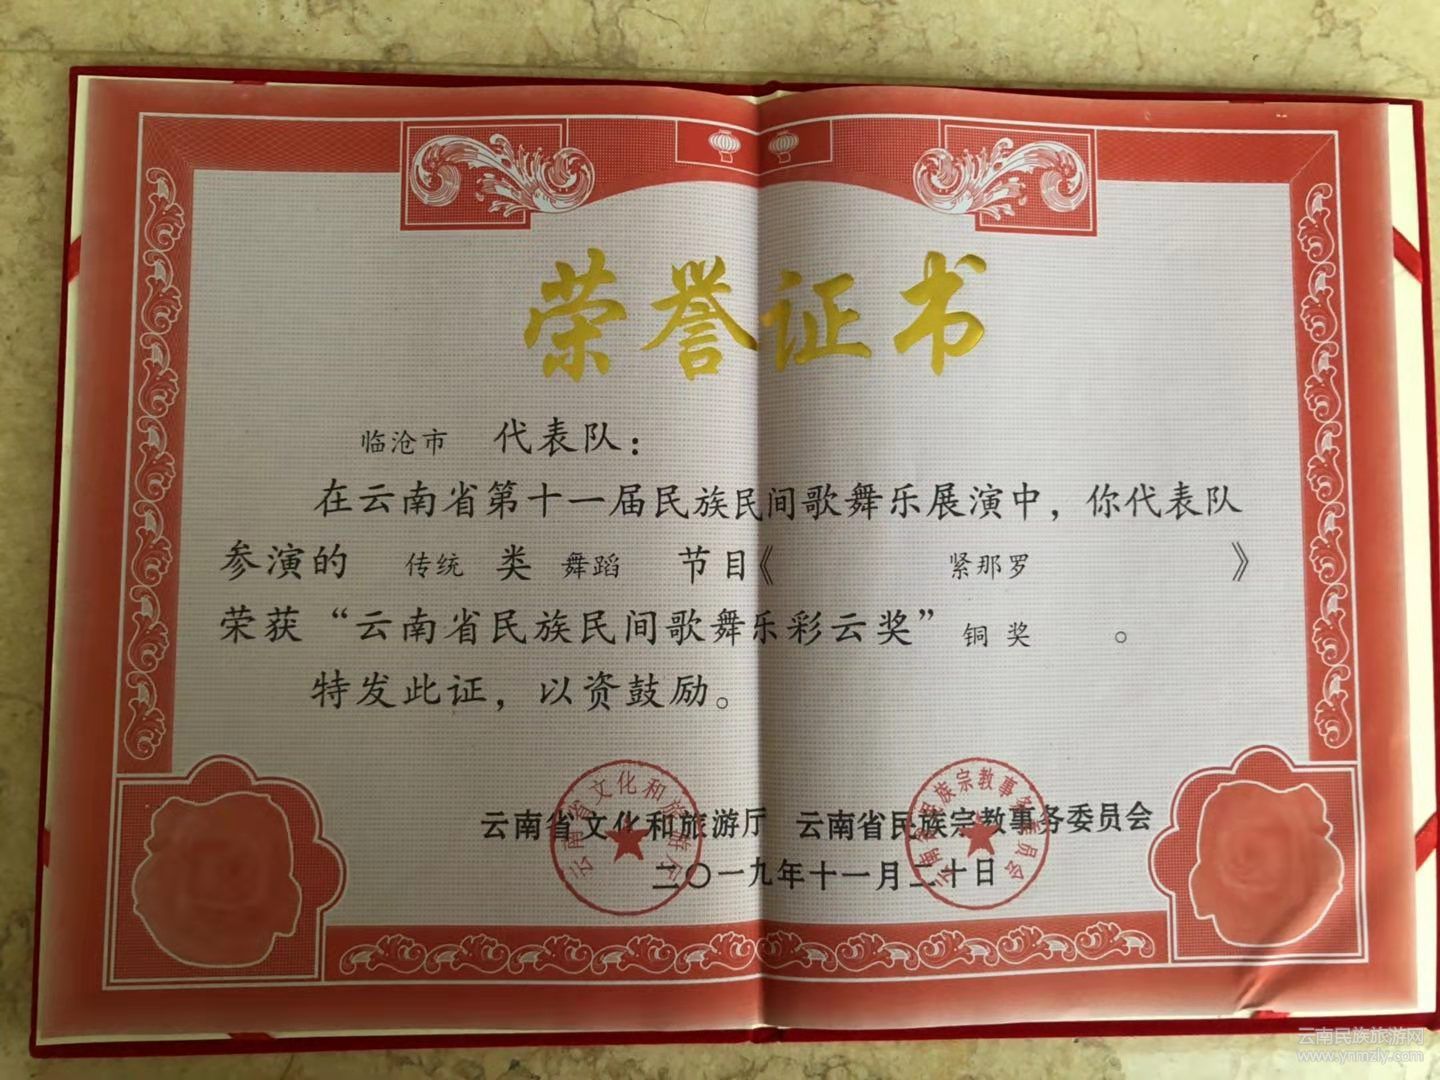 荣誉证书
临沧市 代表队：
在云南省第十一届民族民间歌舞乐展演中，你代表队
参演的 传统 类 舞蹈 节目《 紧那罗 》
荣获“云南省民族民间歌舞乐彩云奖” 铜奖 。
特发此证，以资鼓励。
云南省文化和旅游厅 云南省民族宗教事务委员会
二〇一九年十一月二十日
云南省文化和旅游厅
云南省民族宗教事务委员会
云南民族旅游网
www.ynmzly.com